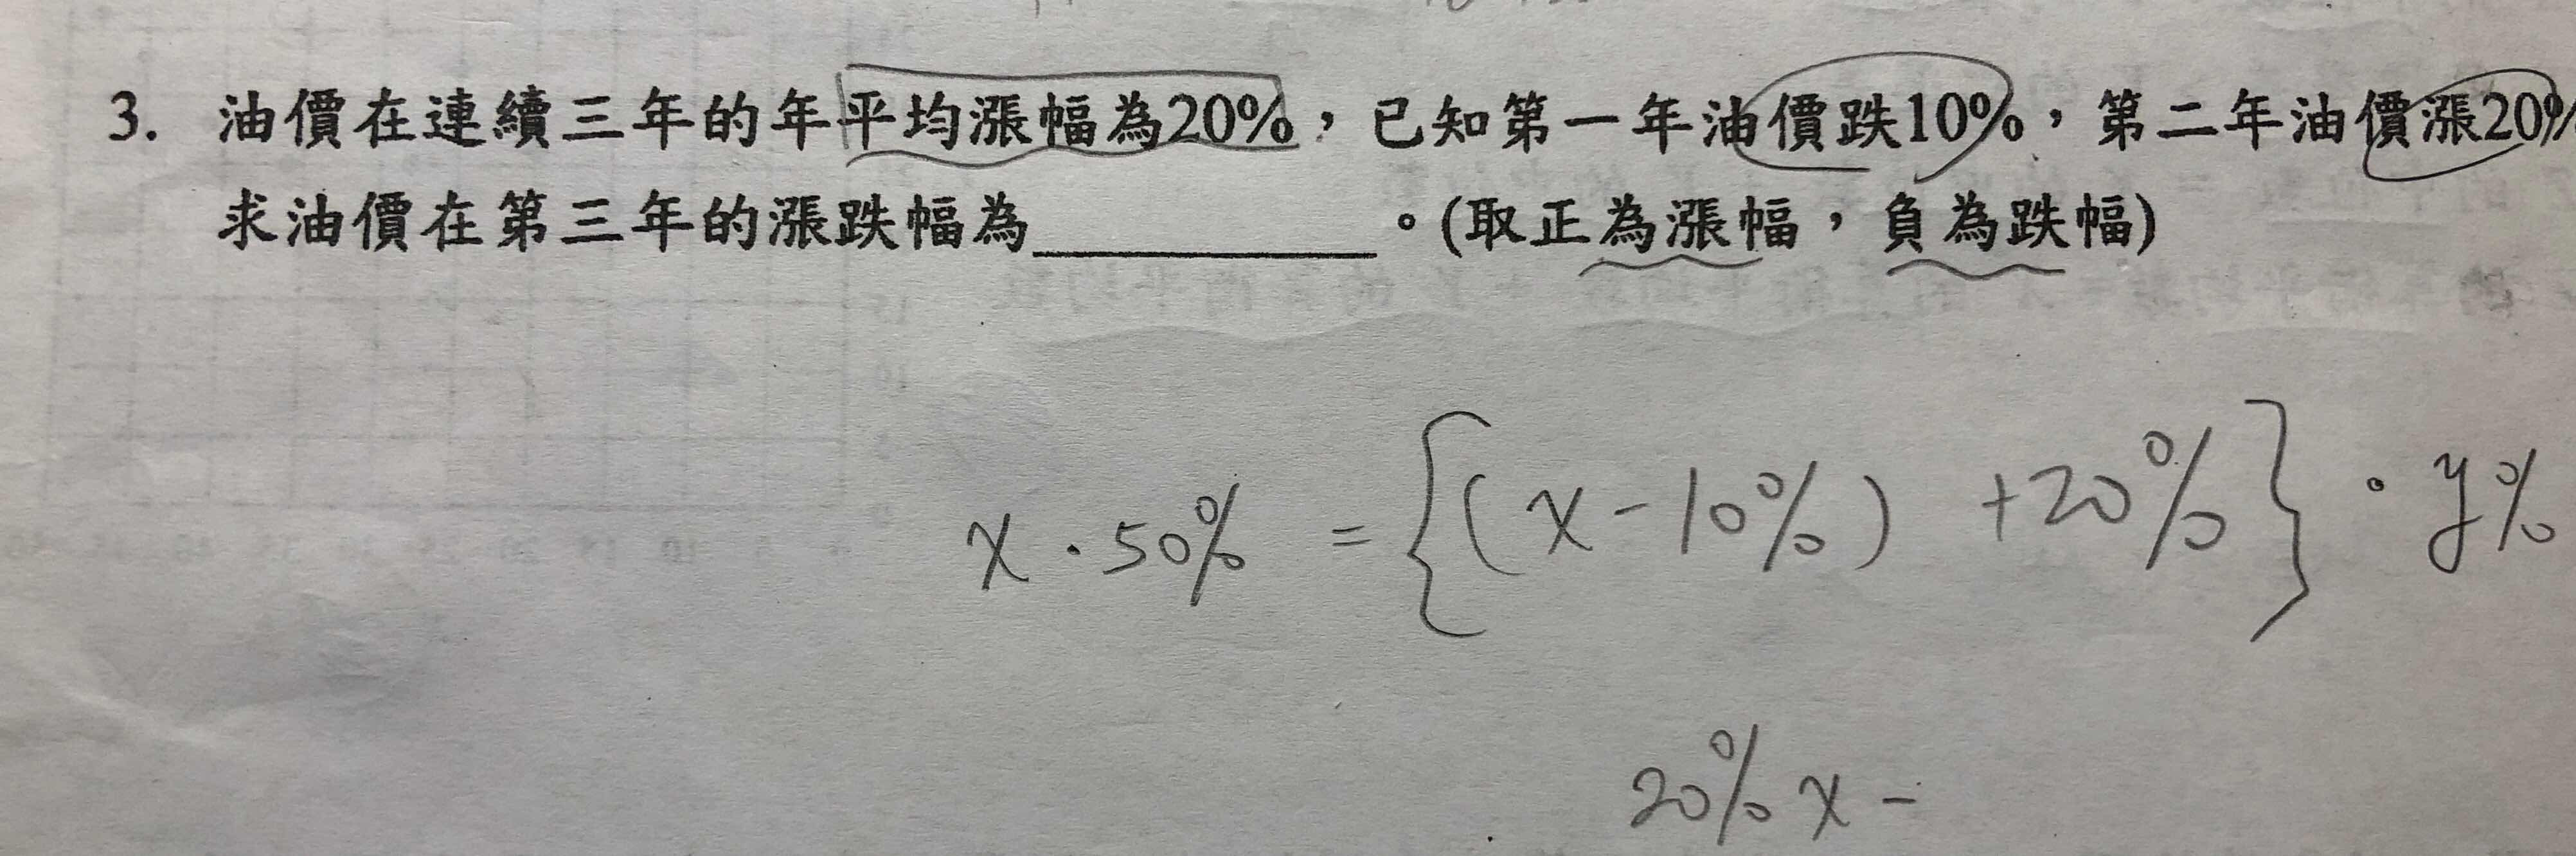 3. 油價在連續三年的年平均漲幅為20%，已知第一年油價跌10%，第二年油價漲20%
求油價在第三年的漲跌幅為＿＿＿＿＿。(取正為漲幅，負為跌幅)
x · 50% = {(x - 10%) + 20%} · y%
20% x -